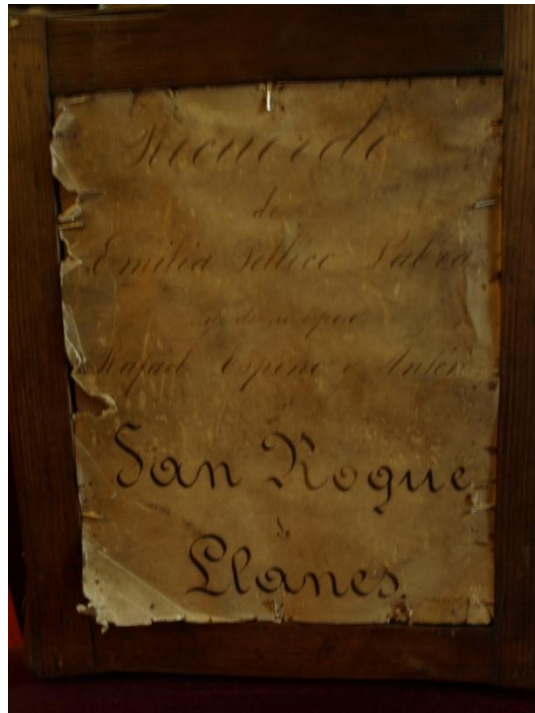 Recuerdo
de
Emilia Pellico Labra
de su esposo
Rafael Espino
San Roque
de
Llanes.